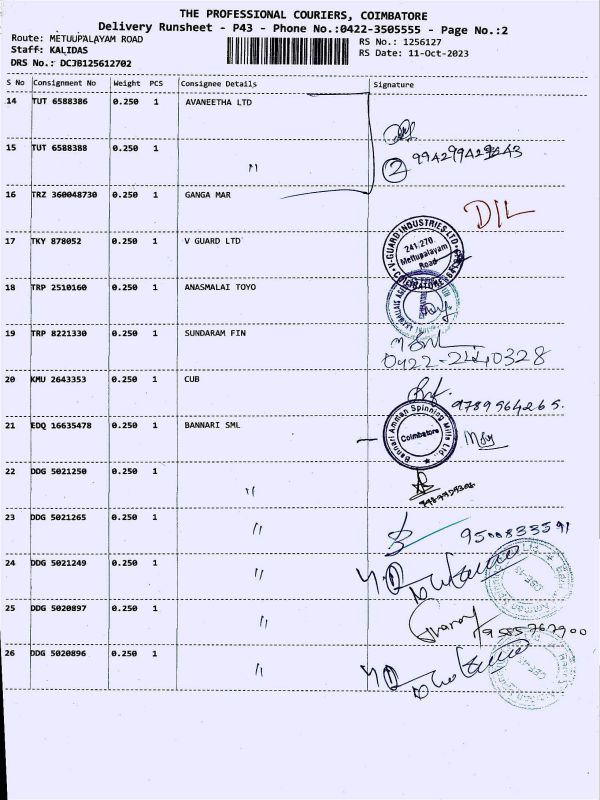 THE PROFESSIONAL COURIERS, COIMBATORE
Delivery Runsheet - P43 - Phone No.:0422-3505555 - Page No.:2
Route: METUUPALAYAM ROAD
RS No.: 1256127
Staff: KALIDAS
RS Date: 11-Oct-2023
DRS No.: DCJB125612702
S No Consignment No Weight PCS Consignee Details Signature
14 TUT 6588386 0.250 1 AVANEETHA LTD
15 TUT 6588388 0.250 1 〃
2
16 TRZ 360048730 0.250 1 GANGA MAR D/L
17 TKY 878052 0.250 1 V GUARD LTD
V-GUARD INDUSTRIES LTD
241-270
Mettupalayam
Road
COIMBATORE
18 TRP 2510160 0.250 1 ANASMALAI TOYO
19 TRP 8221330 0.250 1 SUNDARAM FIN
0422-2440328
20 KMU 2643353 0.250 1 CUB
9789564265.
21 EDQ 16635478 0.250 1 BANNARI SML
Bannari Amman Spinning Mills Ltd.
Coimbatore
22 DDG 5021250 0.250 1 〃
23 DDG 5021265 0.250 1 〃
9500833591
24 DDG 5021249 0.250 1 〃
25 DDG 5020897 0.250 1 〃
26 DDG 5020896 0.250 1 〃